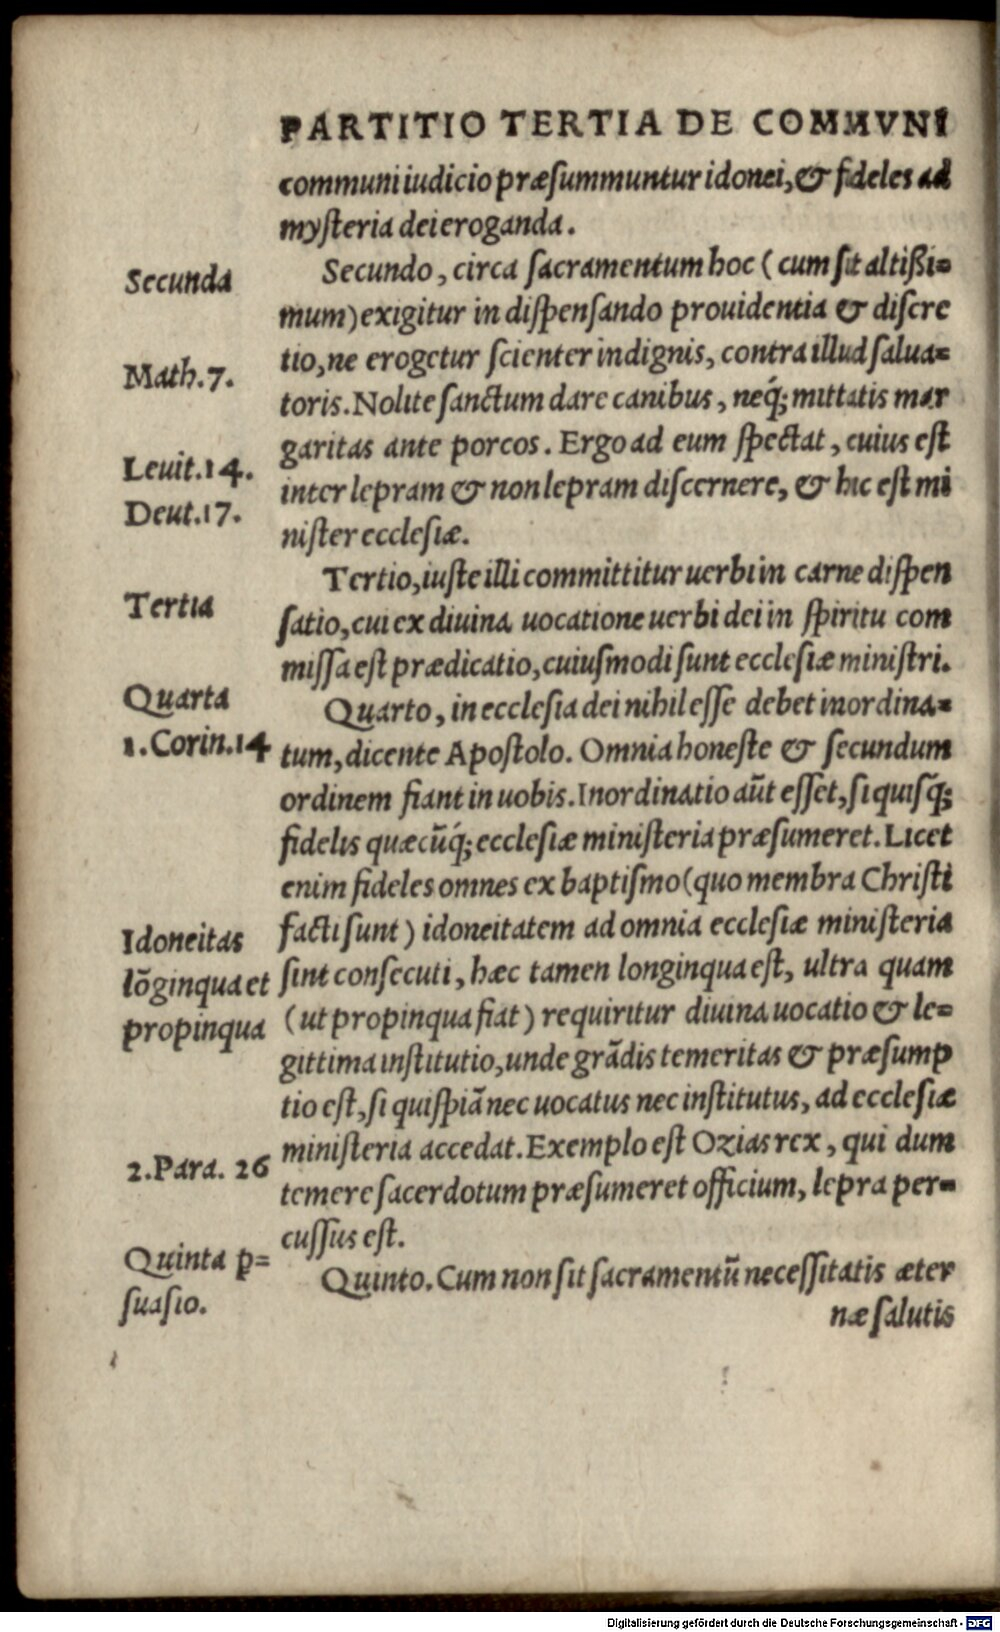 PARTITIO TERTIA DE COMMVNI
communi iudicio præsummuntur idonei, & fideles ad
mysteria dei eroganda.
Secunda
Secundo, circa sacramentum hoc ( cum sit altißi=
mum) exigitur in dispensando prouidentia & discre
tio, ne erogetur scienter indignis, contra illud salua=
Math.7.
toris. Nolite sanctum dare canibus, neq́; mittatis mar
garitas ante porcos. Ergo ad eum spectat, cuius est
Leuit.14.
inter lepram & non lepram discernere, & hic est mi
Deut.17.
nister ecclesiæ.
Tertio, iuste illi committitur uerbi in carne dispen
Tertia
satio, cui ex diuina uocatione uerbi dei in spiritu com
missa est prædicatio, cuiusmodi sunt ecclesiæ ministri.
Quarta
Quarto, in ecclesia dei nihil esse debet inordina=
1.Corin.14
tum, dicente Apostolo. Omnia honeste & secundum
ordinem fiant in uobis. Inordinatio aũt esset, si quisq̃;
fidelis quæcũq́; ecclesiæ ministeria præsumeret. Licet
enim fideles omnes ex baptismo (quo membra Christi
facti sunt ) idoneitatem ad omnia ecclesiæ ministeria
Idoneitas
lõginqua et
propinqua
sint consecuti, hæc tamen longinqua est, ultra quam
( ut propinqua fiat ) requiritur diuina uocatio & le=
gittima institutio, unde grãdis temeritas & præsump
tio est, si quispiã nec uocatus nec institutus, ad ecclesiæ
ministeria accedat. Exemplo est Ozias rex, qui dum
2.Para. 26
temere sacerdotum præsumeret officium, lepra per=
cussus est.
Quinta p̱=
suasio.
Quinto. Cum non sit sacramentũ necessitatis æter
næ salutis
Digitalisierung gefördert durch die Deutsche Forschungsgemeinschaft - DFG